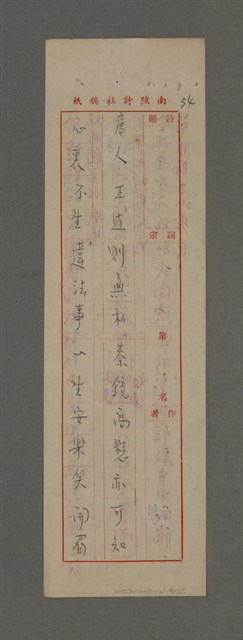 南陔詩社稿紙
34
詩題 詞宗 第 名 作者
為人正直則無私秦鏡高懸亦可知
心裏不生違法事一生安樂笑開眉